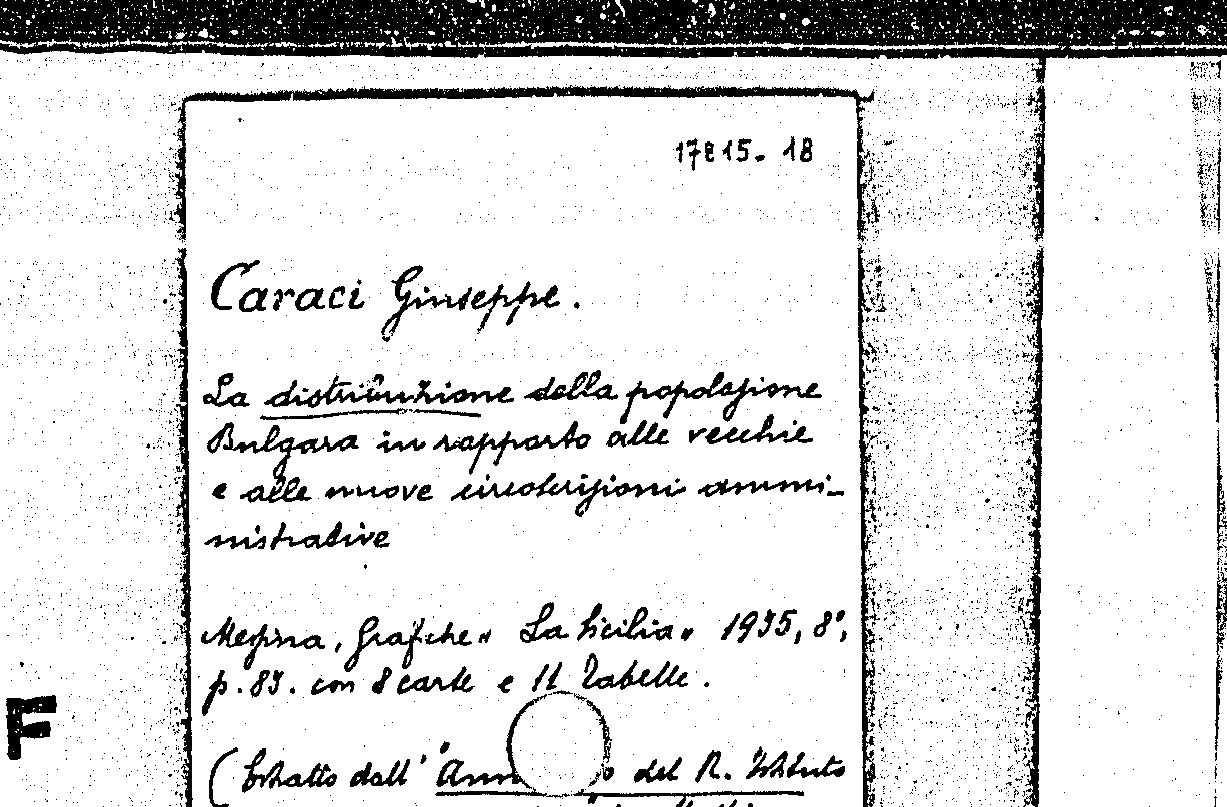 17815. 18
Caraci Giuseppe.
La distribuzione della popolazione
Bulgara in rapporto alle vecchie
e alle nuove circoscrizioni ammi-
nistrative
Messina, Grafiche "La Sicilia" 1935, 8°,
p. 83. con 8 carte e 11 Tabelle.
(Estratto dall' del R. Istituto
F